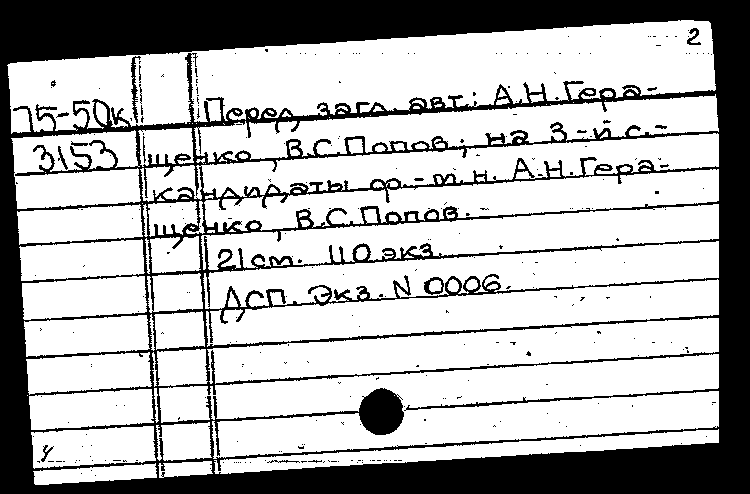 2
75-50к Перед загл. авт.: А.Н.Гера-
3153 щенко, В.С.Попов; на 3-й с.-
кандидаты ф.-м.н. А.Н.Гера-
щенко, В.С.Попов. -
21 см. 110 экз.
ДСП. Экз. N 0006.